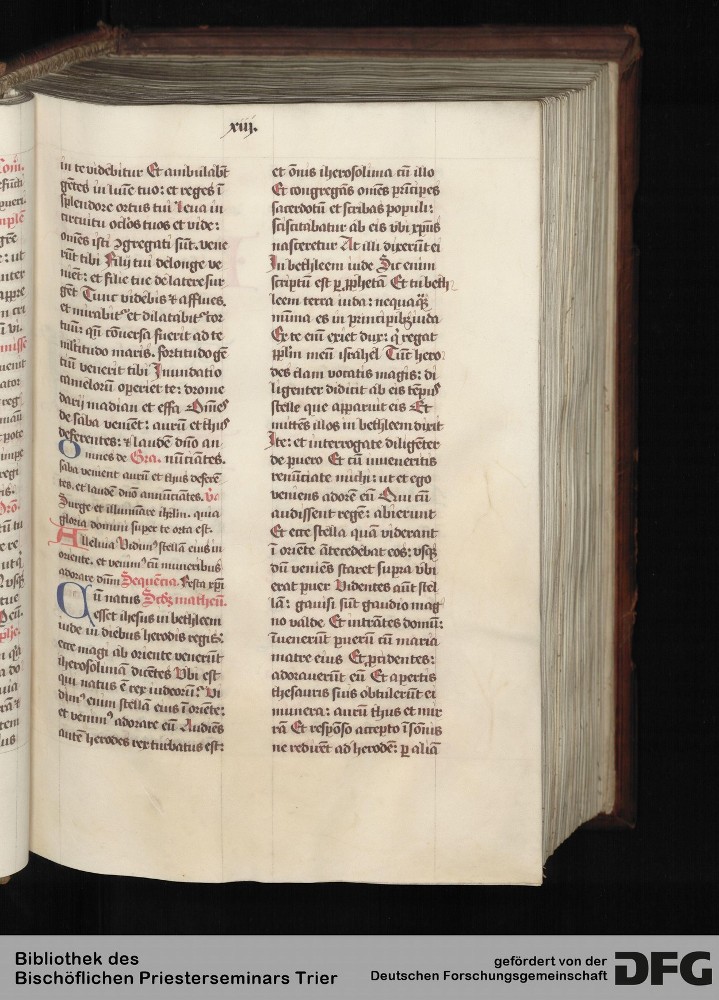 xiij.
in te videbitur Et ambulabūt
gētes in lumīe tuo: et reges ī
splendore ortus tui Leua in
circuitu oclōs tuos et vide:
omēs isti ɔgregati sūt. vene
rūt tibi Filij tui delonge ve
niēt: et filie tue de latere sur
gēt Tunc videbis & afflues.
et mirabitᷣ et dilatabitᷣ cor
tuū: qn̄ cōuersa fuerit ad te
mltitudo maris. fortitudo gē
tiū venerit tibi Inundatio
camelorū operiet te: drome
darij madian et effa Om̄es
de saba veniēt: aurū et thus
deferentes: & laudē dn̄o an
Omnes de Gra. nūciātes.
saba venient aurū et thus deferē
tes. et laudē dn̄o annūciātes. v̄e
Surge et illuminare ihrl̄m. quia
gloria domini super te orta est.
Alleluia Vidimꝰ stellā eius in
oriente. et venimꝰ cū muneribus
adorare dūm Sequēcia. Festa xp̄i
Cū natus Scd̄ꝫ matheū.
esset ihesus in bethleem
iude in diebus herodis regis:
ecce magi ab oriente venerūt
iherosolimā dicētes Vbi est
qui natus ē rex iudeorū: Vi
dimꝰ enim stellā eius ī oriēte:
et venimꝰ adorare eū Audiēs
autē herodes rex turbatus est:
et om̄is iherosolima cū illo
Et congregās omēs prīcipes
sacerdotū et scribas populi:
sciscitabatur ab eis vbi xpūs
nasceretur At illi dixerūt ei
In bethleem iude Sic enim
scriptū est ꝑ ꝓphetā Et tu beth
leem terra iuda: nequaq̄ꝫ
mīma es in principibꝫ iuda
Ex te eni exiet dux: q̇ regat
pplm meū israhel Tūc hero
des clam vocatis magis: di
ligenter didicit ab eis tēpus
stelle que apparuit eis Et
mittēs illos in bethleem dixit
Ite: et interrogate diligēter
de puero Et cū inueneritis
renūciate michi: ut et ego
veniens adorē eū Qui cū
audissent regē: abierunt
Et ecce stella quā viderant
ī oriēte ātecedebat eos: vsqꝫ
dū veniēs staret supra vbi
erat puer Videntes aūt stel
lā: gauisi sūt gaudio mag
no valde Et intrātes domū:
īuenerūt puerū cū maria
matre eius Et ꝓcidentes:
adorauerūt eū Et apertis
thesauris suis obtulerūt ei
munera: aurū thus et mir
rā Et respōso accepto ī sōnis
ne redirēt ad herodē: ꝑ aliā
Bibliothek des
Bischöflichen Priesterseminars Trier
gefördert von der
Deutschen Forschungsgemeinschaft
DFG